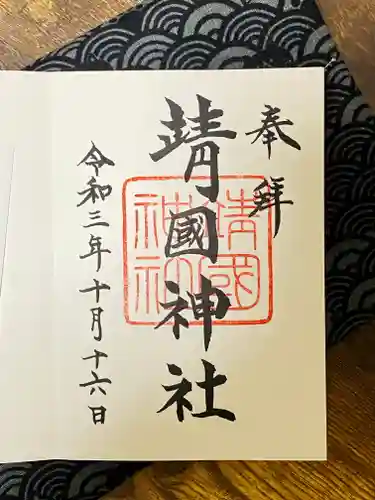 奉拝
靖國神社
靖國神社
令和三年十月十六日